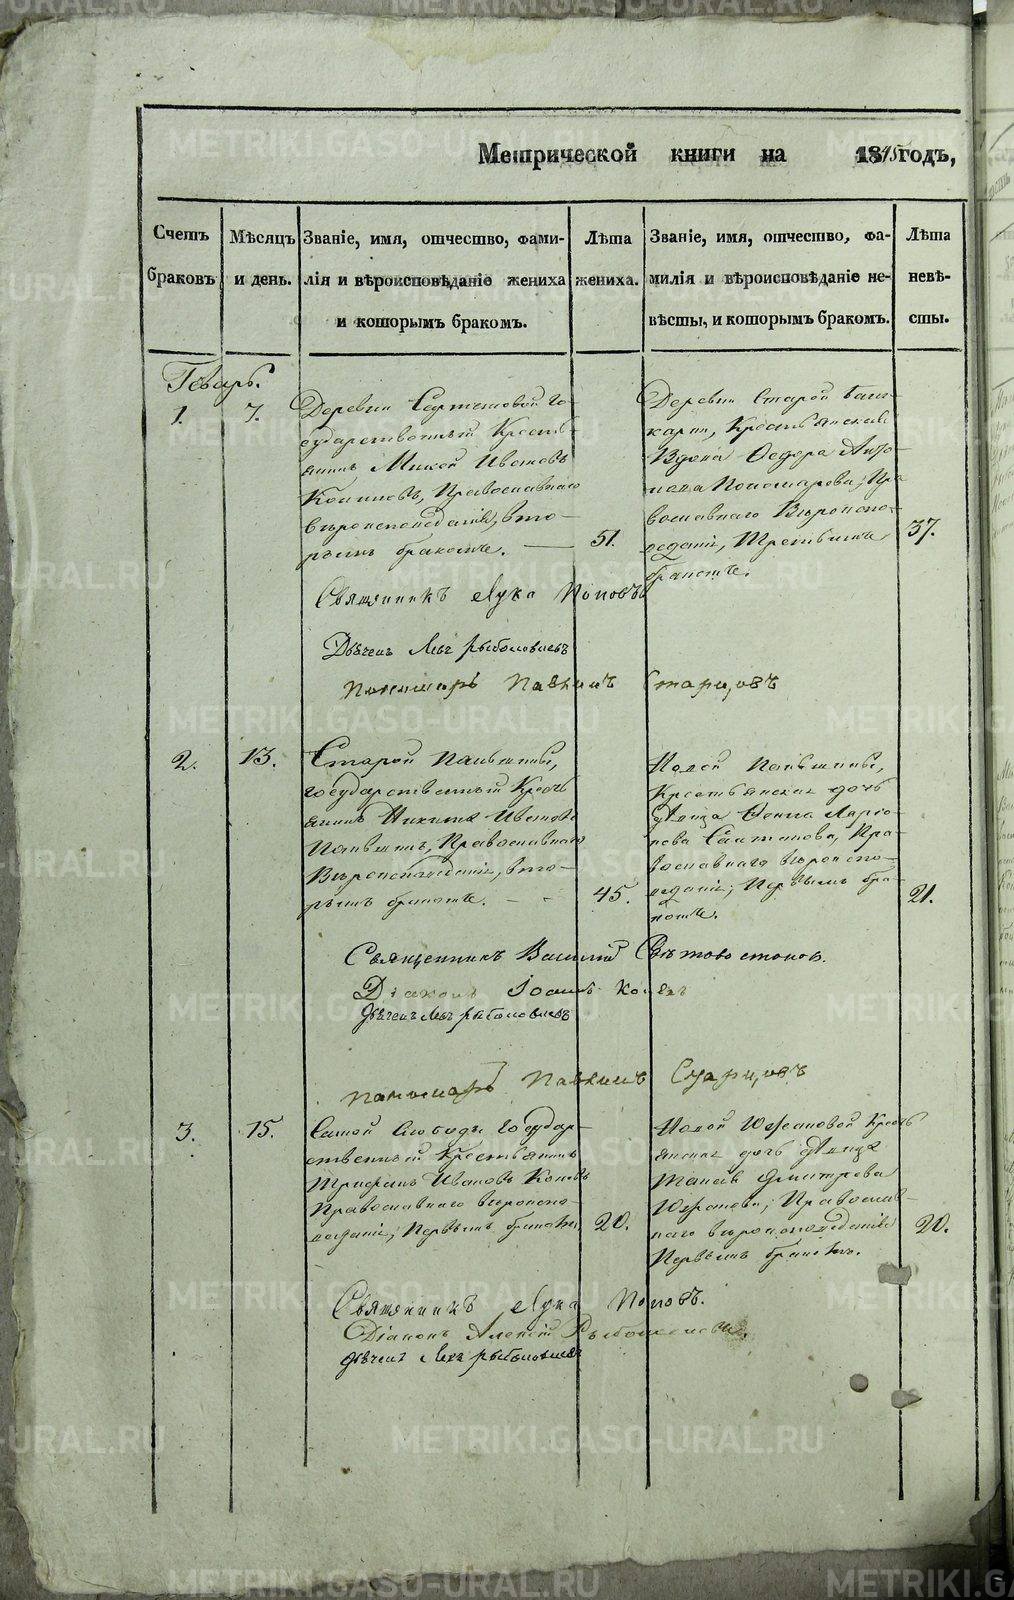 Метрической книги на 1845 годъ,
Счетъ браковъ
Мѣсяцъ и день.
Званіе, имя, отчество, фами-
лія и вѣроисповѣданіе жениха
и которымъ бракомъ.
Лѣта жениха.
Званіе, имя, отчество, фа-
милія и вѣроисповѣданіе не-
вѣсты, и которымъ бракомъ.
Лѣта невѣ-
сты.
Генварь.
1.
7.
Деревни го-
сударственный Кресть-
янинъ Ивановъ
Православнаго
вѣроисповеданія, вто-
рымъ бракомъ.
51.
Деревни Старой
Крестьянская
Вдова Федора Анто-
нова Пономарева, Пра
вославнаго Вѣроиспо-
веданія, Третьимъ
бракомъ.
37.
Священникъ Лука Поповъ
Дьячекъ Левъ Рыболовлевъ
Пономарь Павлинъ Старцовъ
2.
13.
Старой Паньшины,
государственный Кресть
янинъ Никита Ивановъ
Паньшинъ, Православнаго
Вѣроисповеданія, вто-
рымъ бракомъ.
45.
Новой Паньшины,
Крестьянская дочь
дѣвица Ларіо-
нова Православнаго вѣроиспо-
веданія, Первымъ бра-
комъ.
21.
Священникъ Василій
Діаконъ Іоаннъ
Дьячекъ Левъ Рыболовлевъ
Пономарь Павлинъ Старцовъ
3.
15.
Самой Слободы Государ-
ственный Крестьянинъ
Трифонъ Ивановъ
Православнаго вѣроиспо-
веданія, Первымъ бракомъ
20.
Новой Кресть
янская дочь дѣвица
Дмитрева
Православ-
наго вѣроисповеданія
Первымъ бракомъ.
20.
Священникъ Лука Поповъ.
Діаконъ Алексій Рыболовлевъ.
Дьячекъ Левъ Рыболовлевъ
METRIKI.GASO-URAL.RU